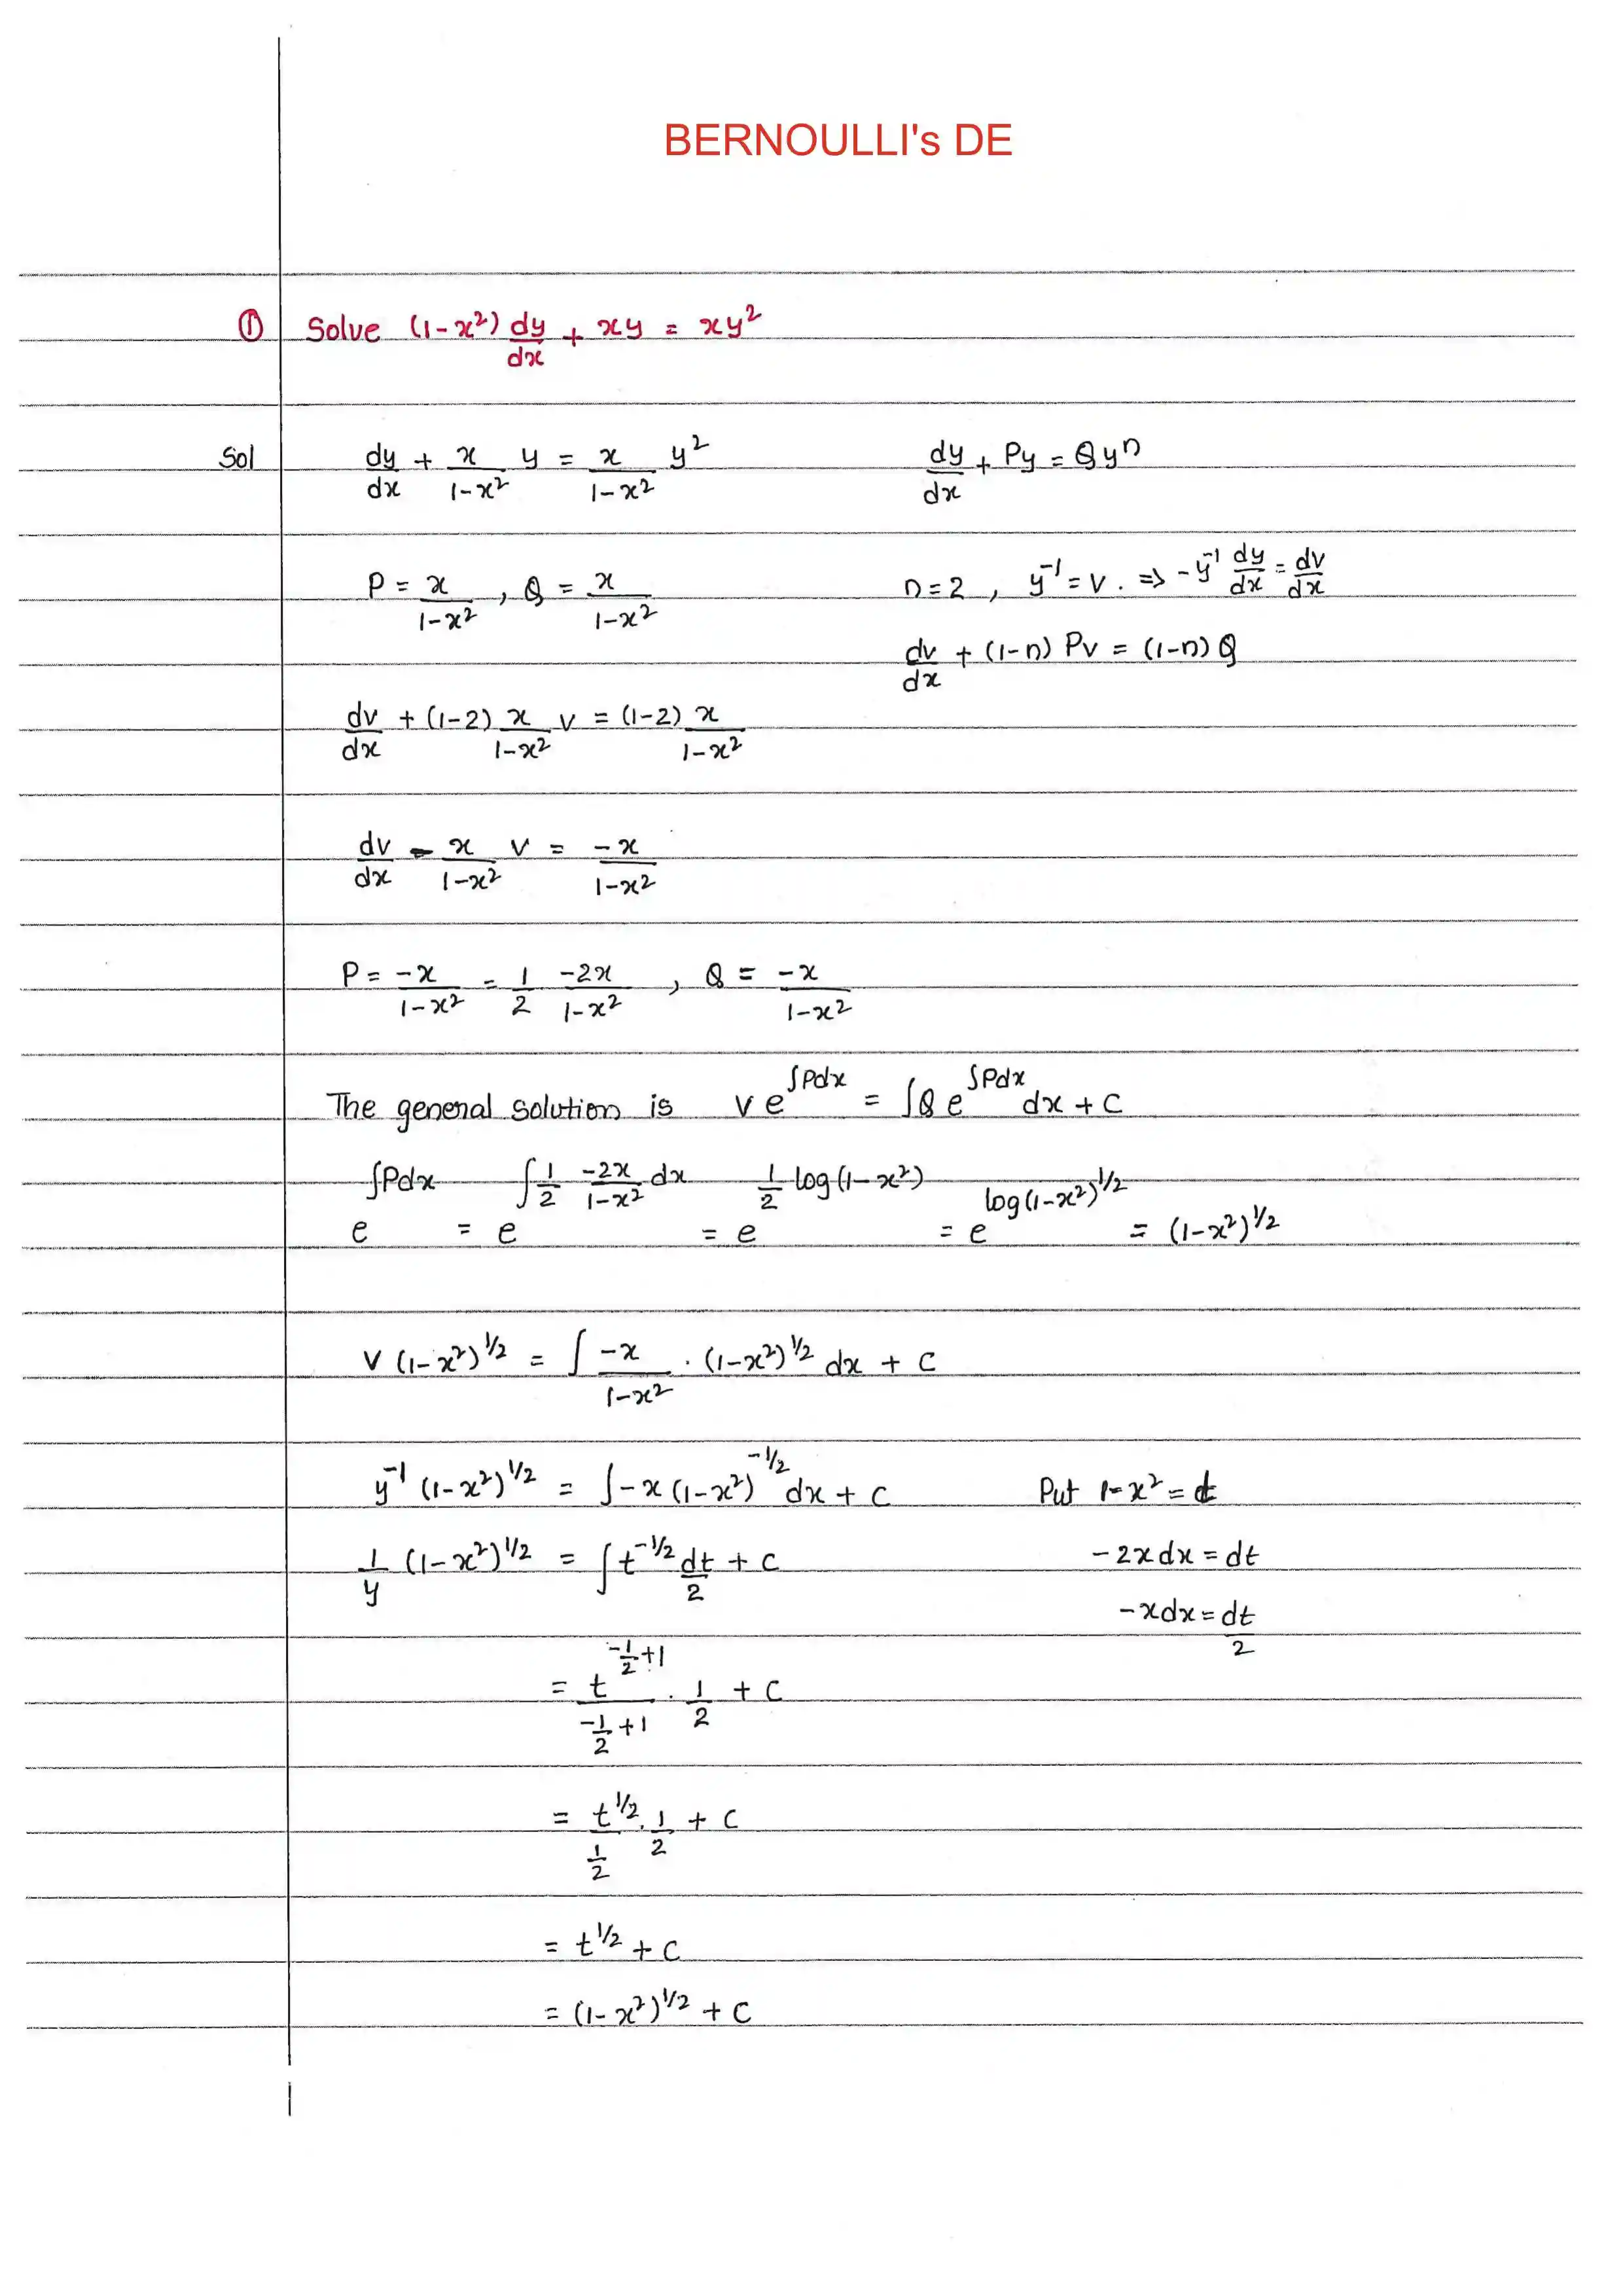 BERNOULLI's DE
① Solve (1-x²) dy/dx + xy = xy²
Sol dy/dx + x/(1-x²) y = x/(1-x²) y² dy/dx + Py = Qyⁿ
P = x/(1-x²) , Q = x/(1-x²) n=2 , y⁻¹ = v . => -y⁻¹ dy/dx = dv/dx
dv/dx + (1-n) Pv = (1-n) Q
dv/dx + (1-2) x/(1-x²) v = (1-2) x/(1-x²)
dv/dx - x/(1-x²) v = -x/(1-x²)
P = -x/(1-x²) = 1/2 -2x/(1-x²) , Q = -x/(1-x²)
The general solution is v e^(∫Pdx) = ∫Q e^(∫Pdx) dx + c
e^(∫Pdx) = e^(∫ 1/2 -2x/(1-x²) dx) = e^(1/2 log(1-x²)) = e^(log(1-x²)^(1/2)) = (1-x²)^(1/2)
v (1-x²)^(1/2) = ∫ -x/(1-x²) . (1-x²)^(1/2) dx + c
y⁻¹ (1-x²)^(1/2) = ∫-x (1-x²)^(-1/2) dx + c Put 1-x² = t
1/y (1-x²)^(1/2) = ∫ t^(-1/2) dt/2 + c -2xdx = dt
-xdx = dt/2
= t^(-1/2+1)/(-1/2+1) . 1/2 + c
= t^(1/2)/(1/2) . 1/2 + c
= t^(1/2) + c
= (1-x²)^(1/2) + c